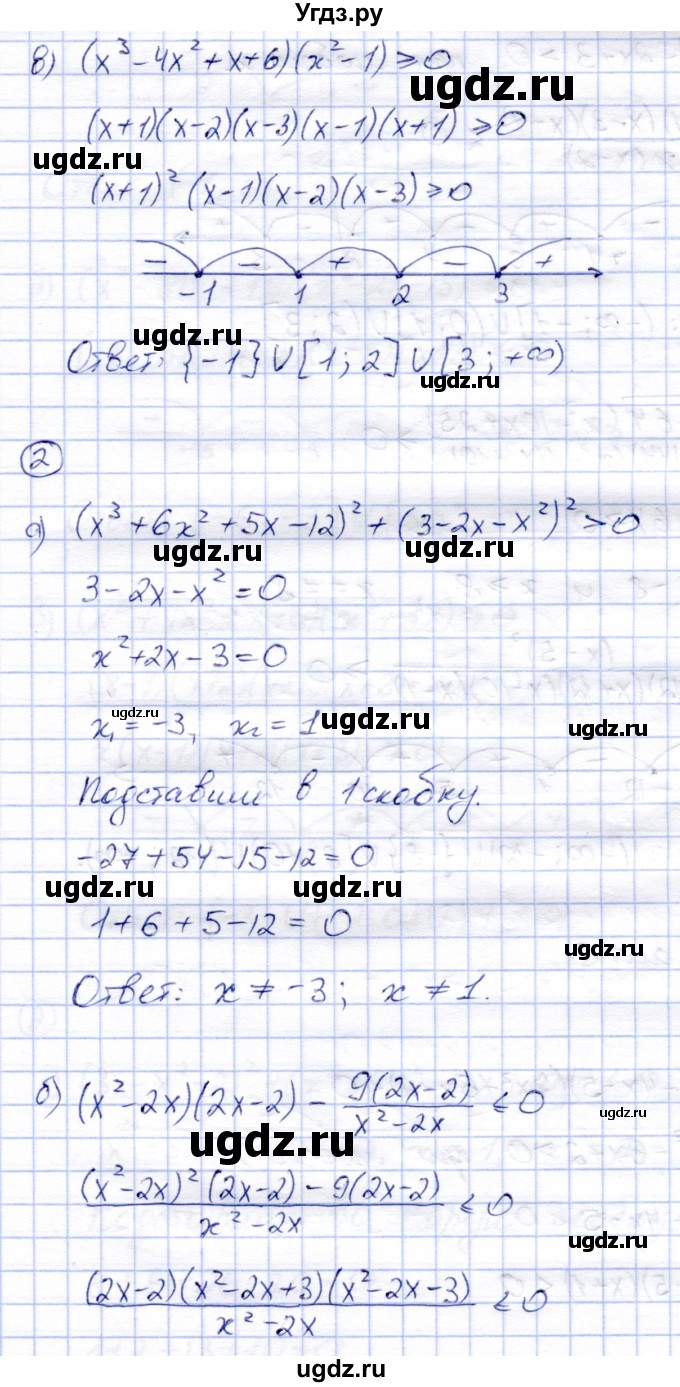 Угдз.ру
в) (x³ - 4x² + x + 6)(x² - 1) ≥ 0
ugdz.ru
(x+1)(x-2)(x-3)(x-1)(x+1) ≥ 0
ugdz.ru
(x+1)² (x-1)(x-2)(x-3) ≥ 0
- - + - +
-1 1 2 3
ugdz.ru
Ответ: {-1} ∪ [1; 2] ∪ [3; +∞)
ugdz.ru
2
а) (x³ + 6x² + 5x - 12)² + (3 - 2x - x²)² > 0
ugdz.ru ugdz.ru
3 - 2x - x² = 0
x² + 2x - 3 = 0
ugdz.ru
x₁ = -3, x₂ = 1
ugdz.ru ugdz.ru
Подставим в 1 скобку.
-27 + 54 - 15 - 12 = 0
ugdz.ru ugdz.ru
1 + 6 + 5 - 12 = 0
ugdz.ru
Ответ: x ≠ -3; x ≠ 1.
б) (x² - 2x)(2x - 2) - 9(2x - 2) / x² - 2x ≤ 0
ugdz.ru
ugdz.ru
(x² - 2x)² (2x - 2) - 9(2x - 2) / x² - 2x ≤ 0
ugdz.ru
(2x - 2)(x² - 2x + 3)(x² - 2x - 3) / x² - 2x ≤ 0
ugdz.ru